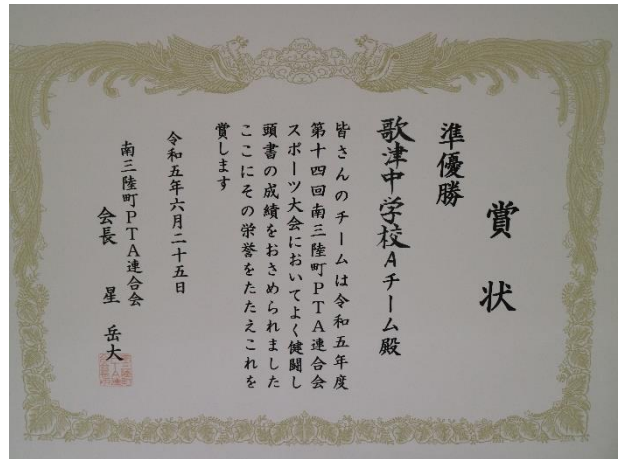 賞状
準優勝
歌津中学校Aチーム殿
皆さんのチームは令和五年度
第十四回南三陸町PTA連合会
スポーツ大会においてよく健闘し
頭書の成績をおさめられました
ここにその栄誉をたたえこれを
賞します
令和五年六月二十五日
南三陸町PTA連合会
会長 星 岳大